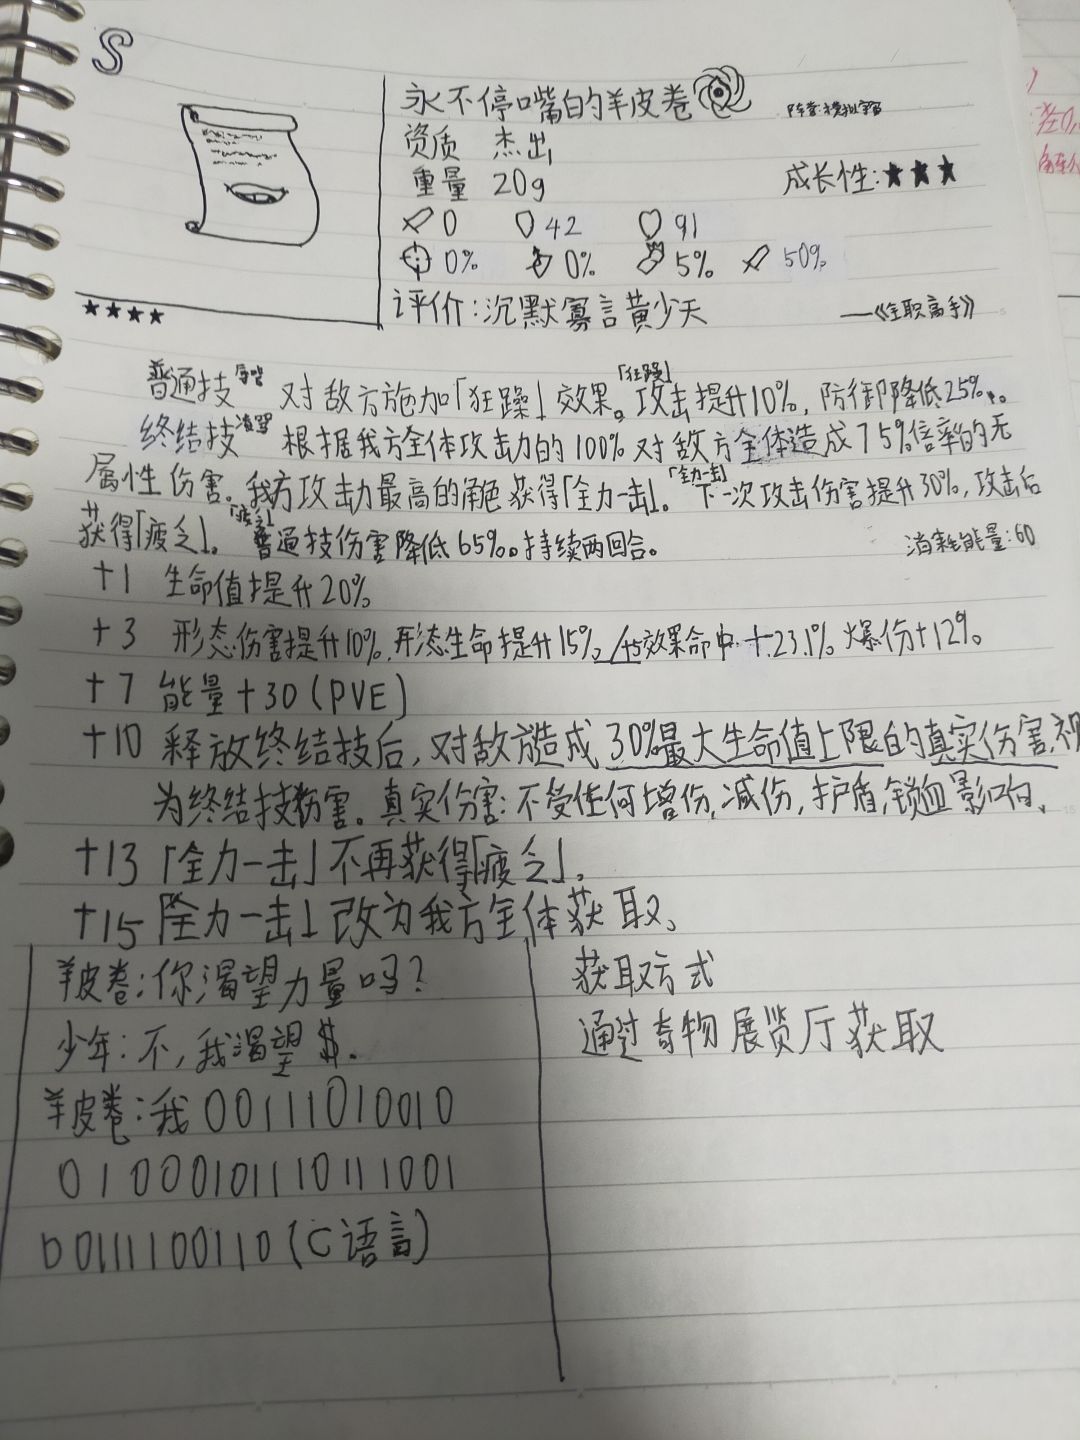 S
永不停嘴的羊皮卷
阵营:模拟宇宙
资质 杰出
重量 20g
成长性:★★★
0 42 91
0% 0% 5% 50%
★★★★
评价:沉默寡言黄少天 ——《全职高手》
普通技 对敌方施加「狂躁」效果。「狂躁」攻击提升10%,防御降低25%。
终结技 根据我方全体攻击力的100%对敌方全体造成75%倍率的无
属性伤害。我方攻击力最高的角色获得「全力一击」。「全力一击」下一次攻击伤害提升30%,攻击后
获得「疲乏」。「疲乏」普通技伤害降低65%。持续两回合。 消耗能量:60
+1 生命值提升20%
+3 形态伤害提升10%,形态生命提升15%/+5效果命中+23.1%爆伤+12%
+7 能量+30(PVE)
+10 释放终结技后,对敌方造成30%最大生命值上限的真实伤害,视
为终结技伤害。真实伤害:不受任何增伤,减伤,护盾,锁血影响、
+13「全力一击」不再获得「疲乏」。
+15「全力一击」改为我方全体获取、
羊皮卷:你渴望力量吗?
少年:不,我渴望$.
羊皮卷:我00111010010
01000101110111001
00111100110(C语言)
获取方式
通过奇物展览厅获取